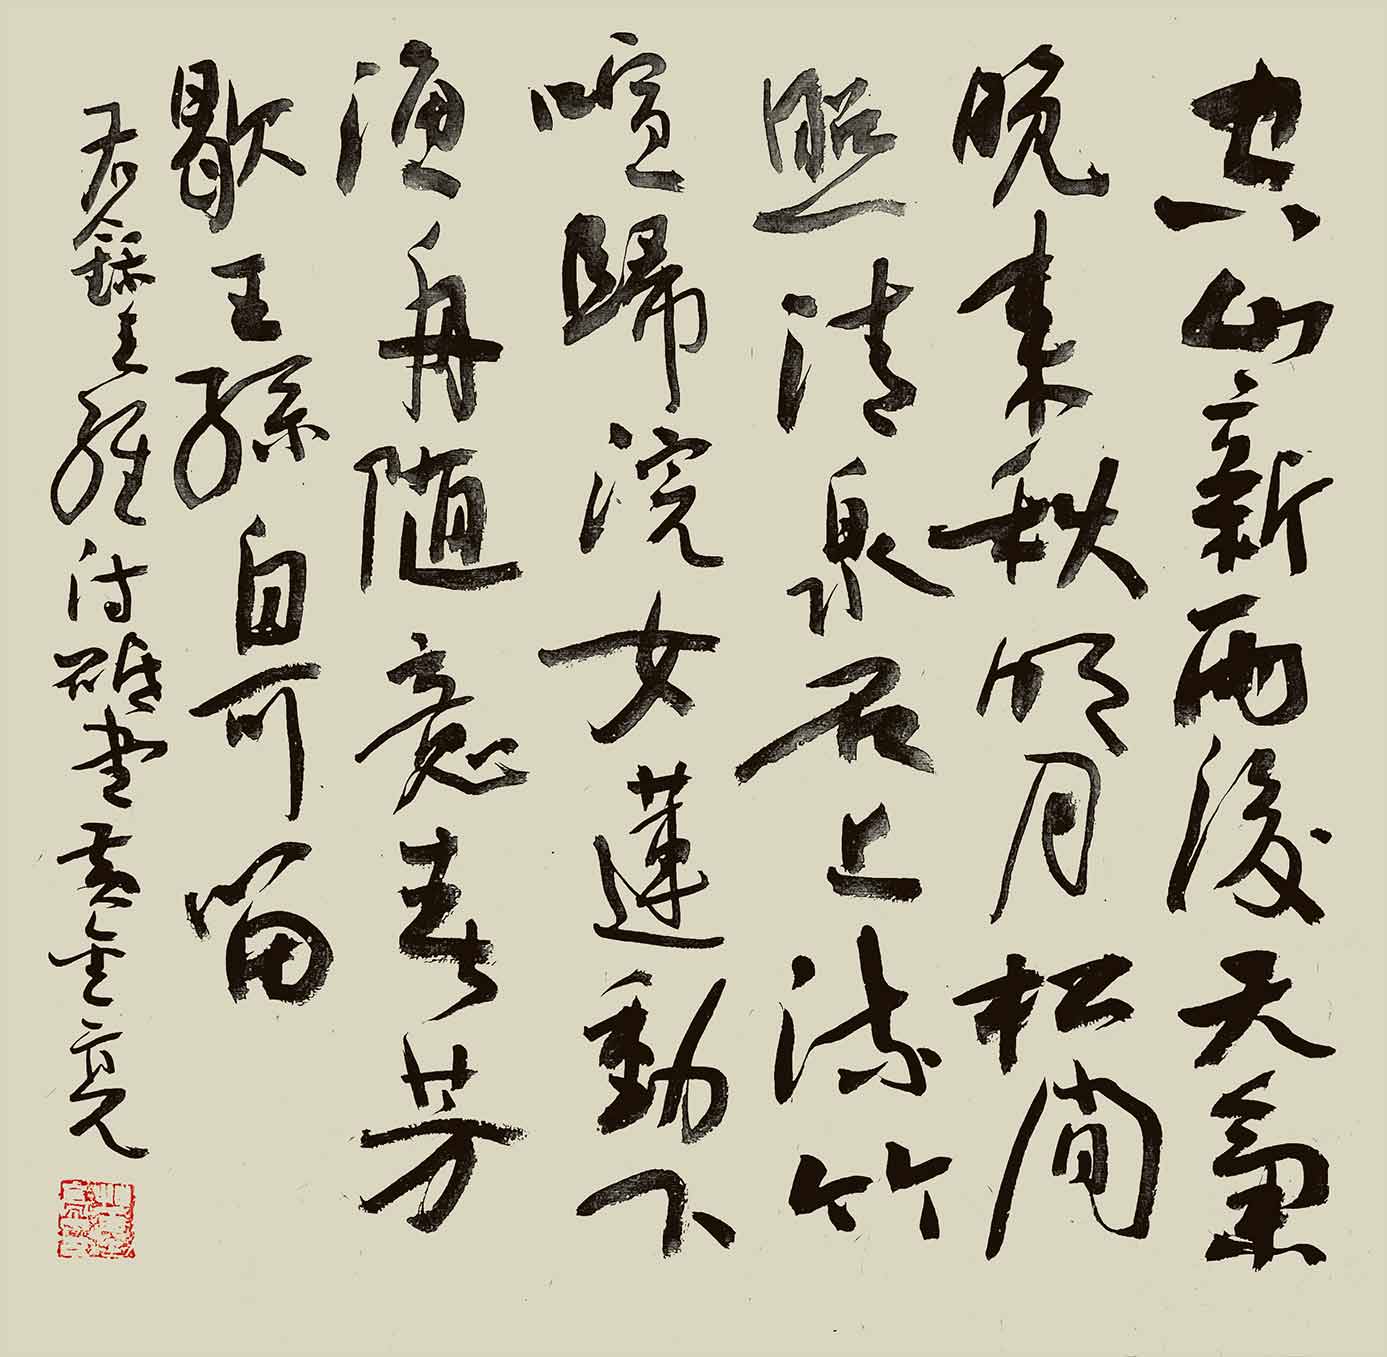 空山新雨後天氣
晚来秋明月松間
照清泉石上流竹
喧歸浣女蓮動下
漁舟随意春芳
歇王孫自可留
右錄王維诗 黄金亮